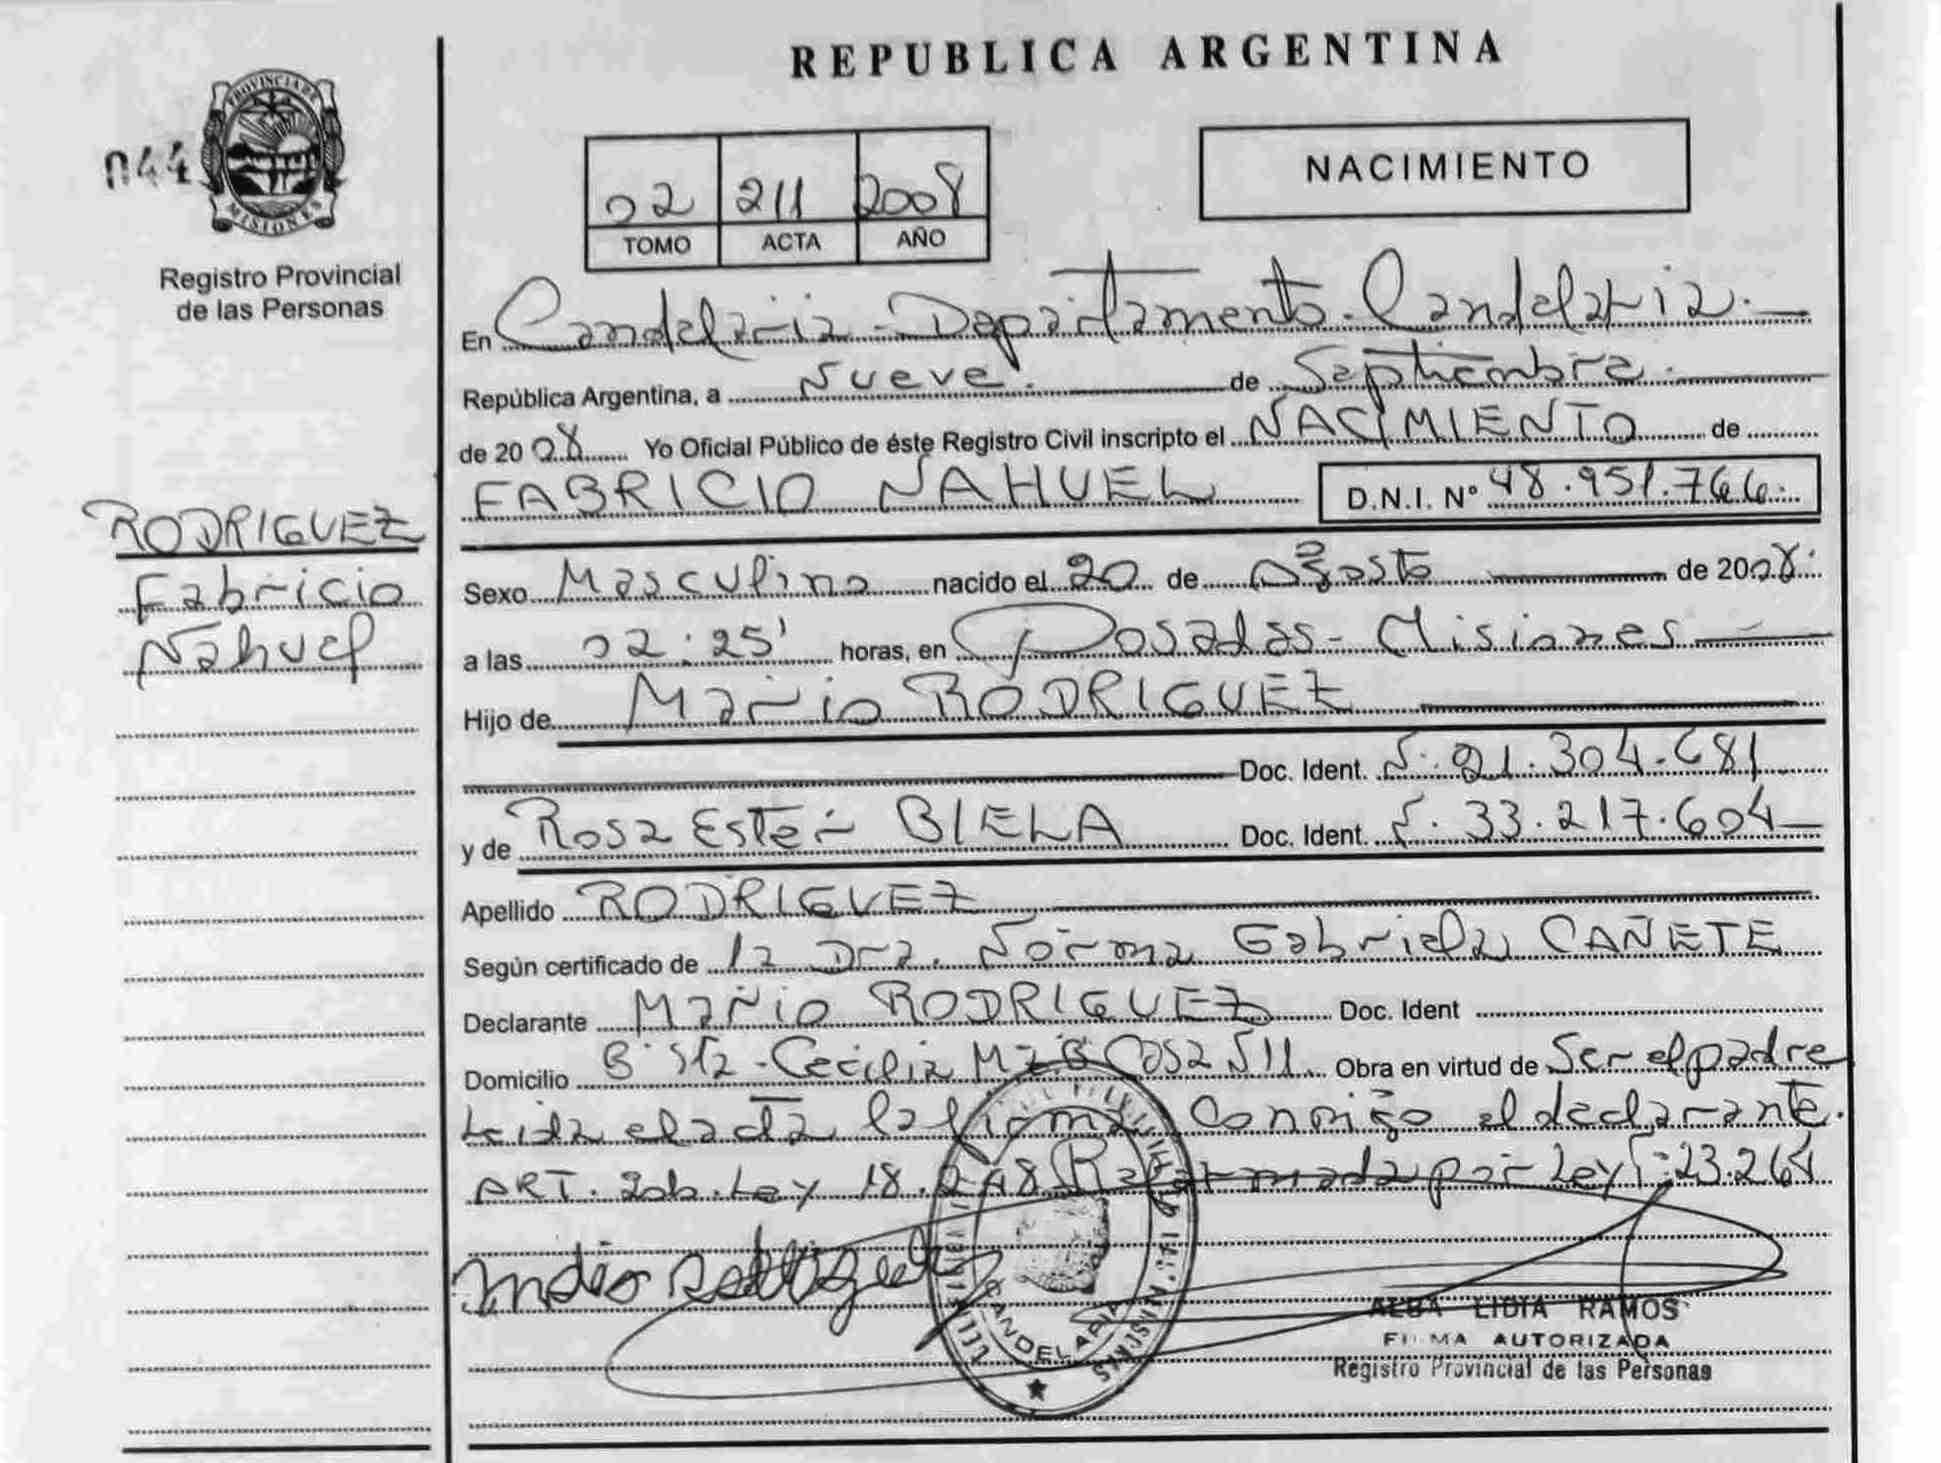 REPUBLICA ARGENTINA
PROVINCIA DE
MISIONES
044
Registro Provincial
de las Personas
02 211 2008
TOMO ACTA AÑO
NACIMIENTO
En Candelaria - Departamento - Candelaria.
República Argentina, a Nueve. de Septiembre.
de 2008 Yo Oficial Público de éste Registro Civil inscripto el NACIMIENTO de
FABRICIO NAHUEL D.N.I. Nº 48.951.766.
RODRIGUEZ
Fabricio
Nahuel
Sexo Masculino nacido el 20 de Agosto de 2008.
a las 02:25' horas, en Posadas - Misiones
Hijo de Mario RODRIGUEZ
Doc. Ident. N. 21.304.681
y de Rosa Ester BIELA Doc. Ident. N. 33.217.604
Apellido RODRIGUEZ
Según certificado de la Dra. Norma Gabriela CAÑETE
Declarante Mario RODRIGUEZ Doc. Ident
Domicilio Bº Sta - Cecilia Mz B Casa 511 Obra en virtud de Ser el padre
Leida el acta la firma conmigo el declarante.
ART. Ley 18.248 Reformada por Ley N: 23.264
Mario Rodriguez
CANDELARIA
MISIONES
ALBA LIDIA RAMOS
FIRMA AUTORIZADA
Registro Provincial de las Personas